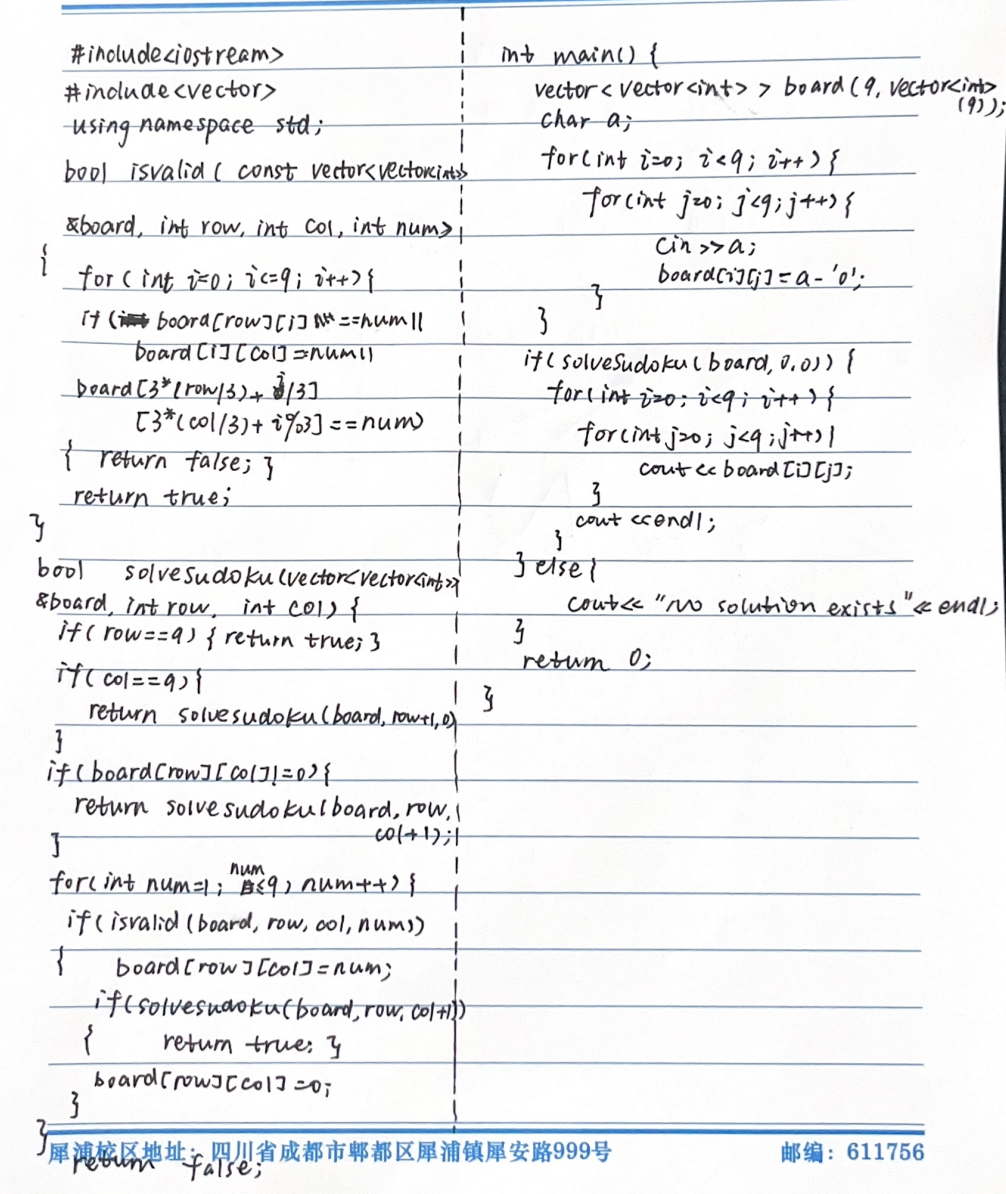 #include<iostream>
#include<vector>
using namespace std;
bool isvalid( const vector<vector<int>>
&board, int row, int col, int num>
{
for( int i=0; i<=9; i++){
if( board[row][i] ==num||
board[i][col]==num||
board[3*(row/3)+ i/3]
[3*(col/3)+ i%3]==num)
{ return false; }
return true;
}
bool solvesudoku(vector<vector<int>>
&board, int row, int col) {
if(row==9) { return true; }
if(col==9){
return solvesudoku(board, row+1,0)
}
if(board[row][col]!=0){
return solvesudoku(board, row,
col+1);
}
for(int num=1; num≤9; num++){
if(isvalid(board, row, col, num))
{ board[row][col]=num;
if(solvesudoku(board,row,col+1))
{ return true; }
board[row][col]=0;
}
}
return false;
int main() {
vector<vector<int> > board(9, vector<int>
(9));
char a;
for(int i=0; i<9; i++){
for(int j=0; j<9;j++){
cin>>a;
board[i][j]=a-'0';
}
}
if(solveSudoku(board,0,0)) {
for(int i=0; i<9; i++){
for(int j=0; j<9;j++){
cout<<board[i][j];
}
cout<<endl;
}
} else{
cout<<"no solution exists"<<endl;
}
return 0;
}
犀浦校区地址：四川省成都市郫都区犀浦镇犀安路999号
邮编：611756